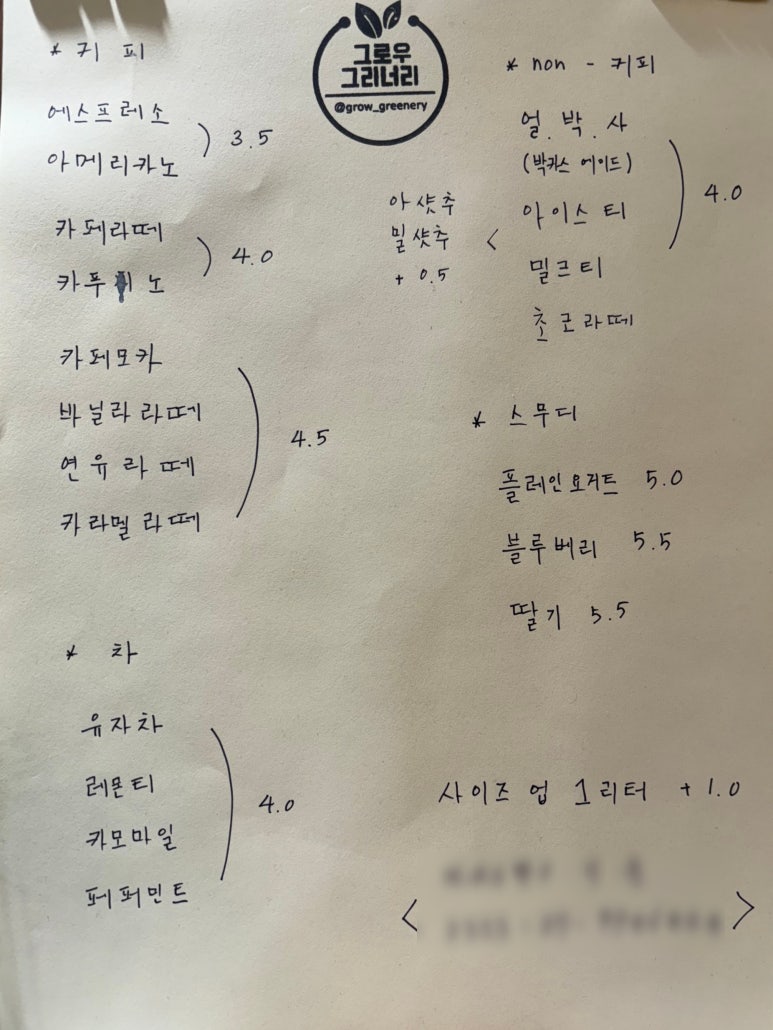 그로우
그리너리
@grow_greenery
* 커 피
에스프레소
아메리카노
3.5
카페라떼
카푸 노
4.0
카페모카
바닐라 라떼
연유 라 떼
카라멜 라떼
4.5
* 차
유자차
레몬티
카모마일
페퍼민트
4.0
* non - 커피
얼.박.사
(박카스 에이드)
아이스 티
밀크티
초코라떼
4.0
아 샷추
밀 샷추
+ 0.5
<
* 스무디
플레인요거트 5.0
블루베리 5.5
딸기 5.5
사이즈 업 1리터 + 1.0
< >